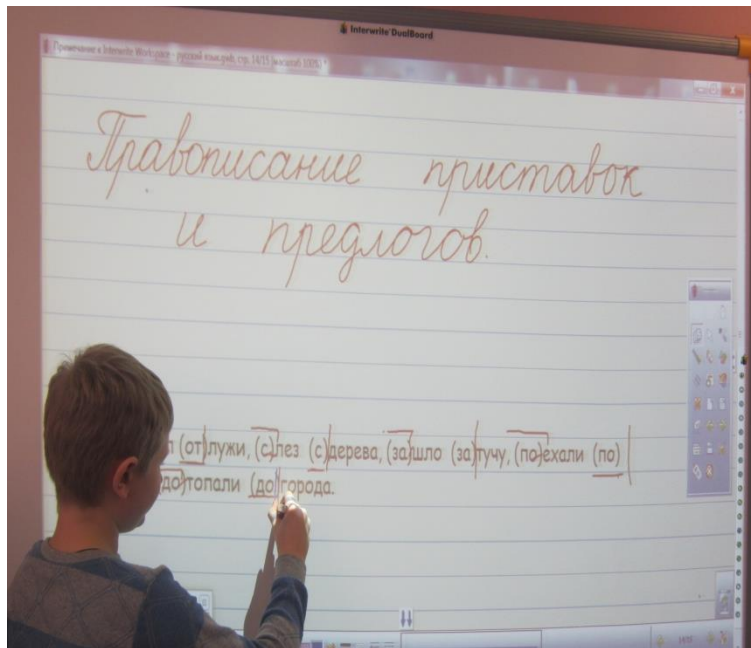 Interwrite DualBoard
Примечание в Interwrite Workspace - русский язык.gwb, стр. 14/15 [масштаб 100%] *
Правописание приставок
и предлогов.
(от) лужи, (с)лез (с) дерева, (за)шло (за) тучу, (по)ехали (по)
до)топали (до) города.
14/15